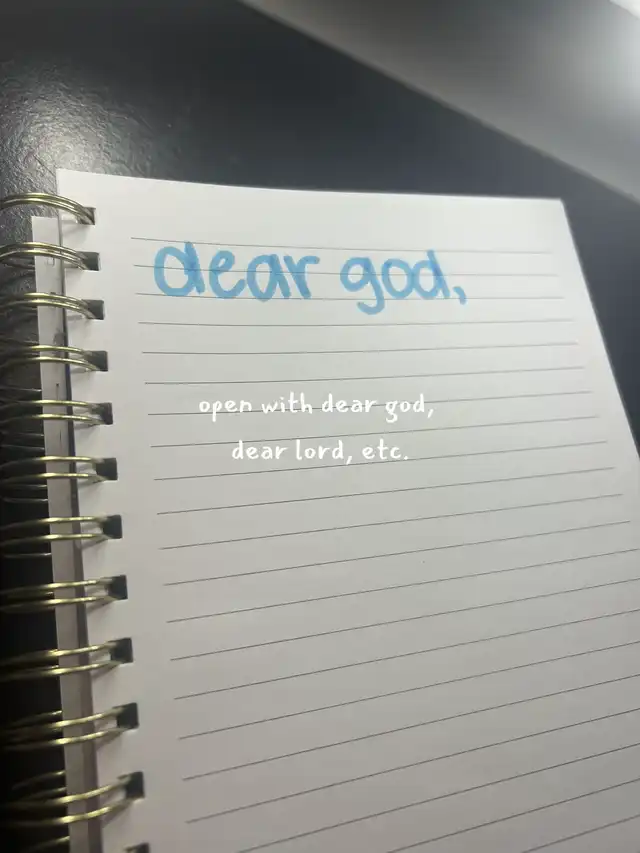 dear god,
open with dear god,
dear lord, etc.